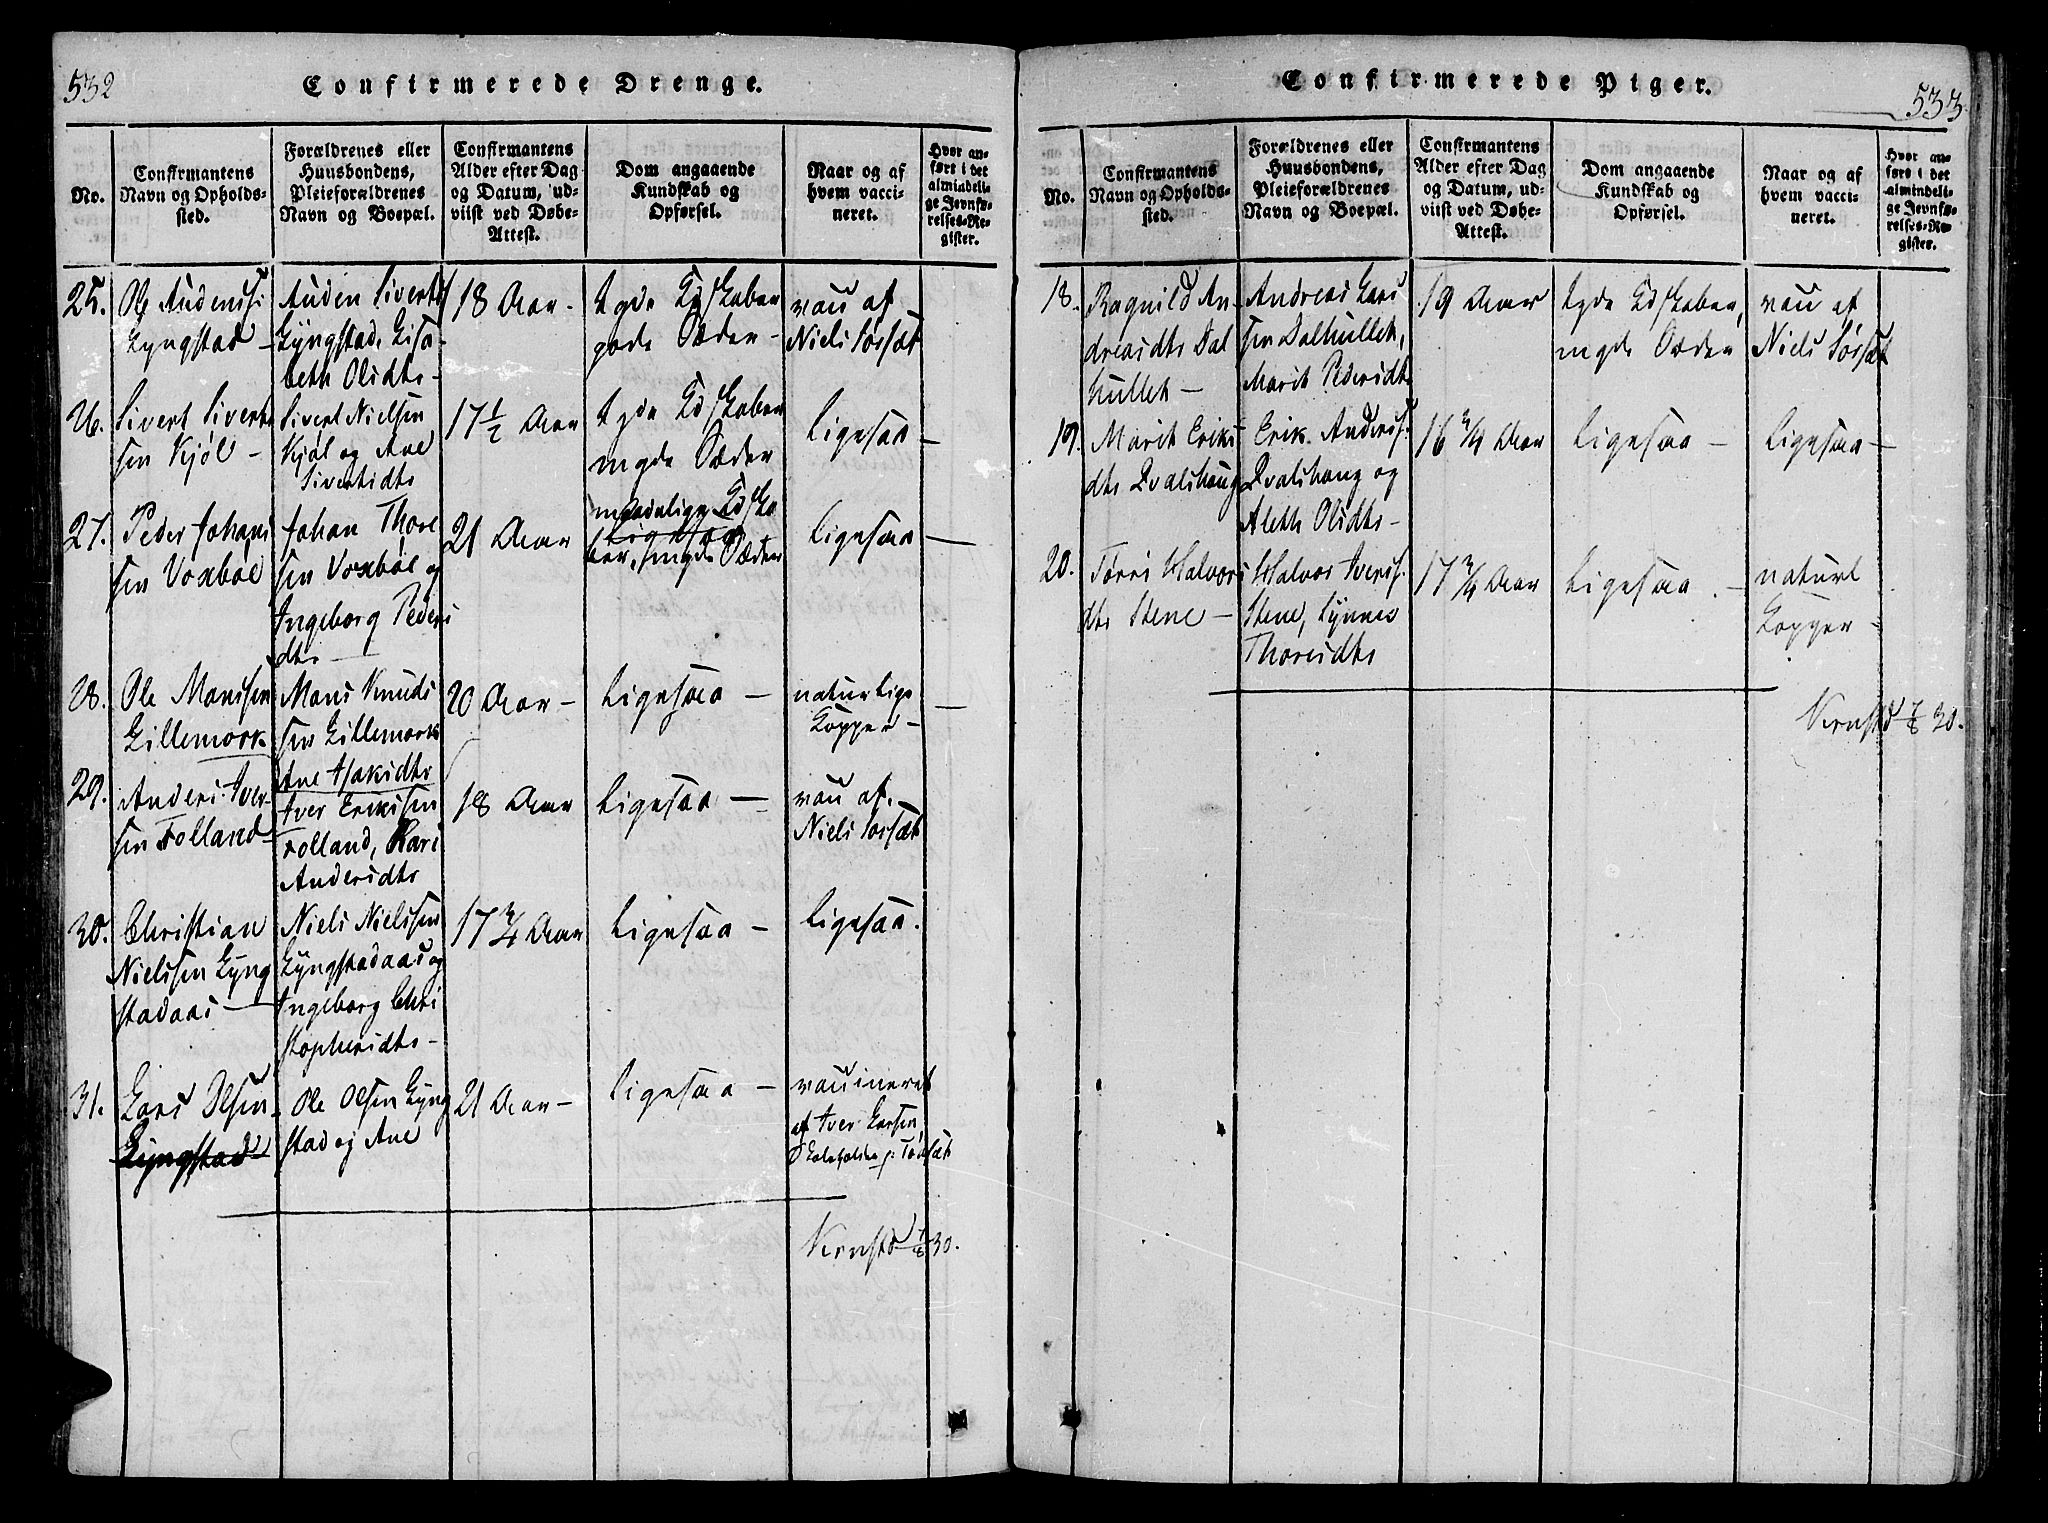 532
Confirmerede Drenge.
No.
Confirmantens
Navn og Opholds-
sted.
Forældrenes eller
Huusbondens,
Pleieforældrenes
Navn og Boepæl.
Confirmantens
Alder efter Dag
og Datum, ud-
viist ved Døbe-
Attest.
Dom angaaende
Kundskab og
Opførsel.
Naar og af
hvem vacci-
neret.
Hvor an-
ført i det
almindeli-
ge Jevnfø-
relses-Re-
gister.
25.
Ole Audenss:
Lyngstad –
Auden Siverts
Lyngstad, Lisa-
beth Olsdtr –
18 Aar –
gode Sæder –
vac af
Niels Sørsæt
26.
Sivert Sivert
sen Kjøl –
Sivert Nielsen
Kjøl og Ane
Sivertsdtr
17 1/2 Aar
mgde Sæder
Ligesaa –
27.
Peder Johans
sen Voxbøe
Johan Thore
sen Voxbøl og
Ingeborg Peders
dtr –
21 Aar
maadelige Kdska
Ligesaa
ber, smgde Sæder
Ligesaa –
28.
Ole Monssen
Lillemork
Mons Knuds
sen Lillemork
Ane Isaksdtr
20 Aar –
Ligesaa –
naturlige
Kopper –
29.
Anders Iver-
sen Tolland –
Iver Erikssen
Tolland, Kari
Andersdtr
18 Aar
Ligesaa –
vac af
Niels Sørsæt
30.
Christian
Nielssen Lyng
stadaas –
Niels Nielssen
Lyngstadaas og
Ingeborg Chri
stophersdtr –
17 3/4 Aar
Ligesaa –
Ligesaa.
31.
Lars Olsen
Lyngstad
Ole Olsen Lyng
stad og Ane
21 Aar –
Ligesaa –
vaccineret
af Iver Larsen,
Kernstd 1/8 30.
533
Confirmerede Piger.
No.
Confirmantens
Navn og Opholds-
sted.
Forældrenes eller
Huusbondens,
Pleieforældrenes
Navn og Boepæl.
Confirmantens
Alder efter Dag
og Datum, ud-
viist ved Døbe-
Attest.
Dom angaaende
Kundskab og
Opførsel.
Naar og af
hvem vacci-
neret.
Hvor an-
ført i det
almindeli-
ge Jevnfø-
relses-Re-
gister.
18.
Ragnild An-
dreasdtr Dal
hullet –
Andreas Lars
sen Dalhullet,
Marit Pedersdtr
19 Aar
mgde Sæder
vac af
Niels Sørsæt
19.
Marit Eriks
dtr Qvalshaug
Erik Anderss:
Qvalshaug og
Aleth Olsdtr –
16 3/4 Aar
Ligesaa –
Ligesaa –
20.
Tørri Halvors
dtr Stene –
Halvor Iverss:
Stene, Synnev
Thoresdtr
17 3/4 Aar
Ligesaa –
naturl
Kopper –
Kernstd 1/8 30.